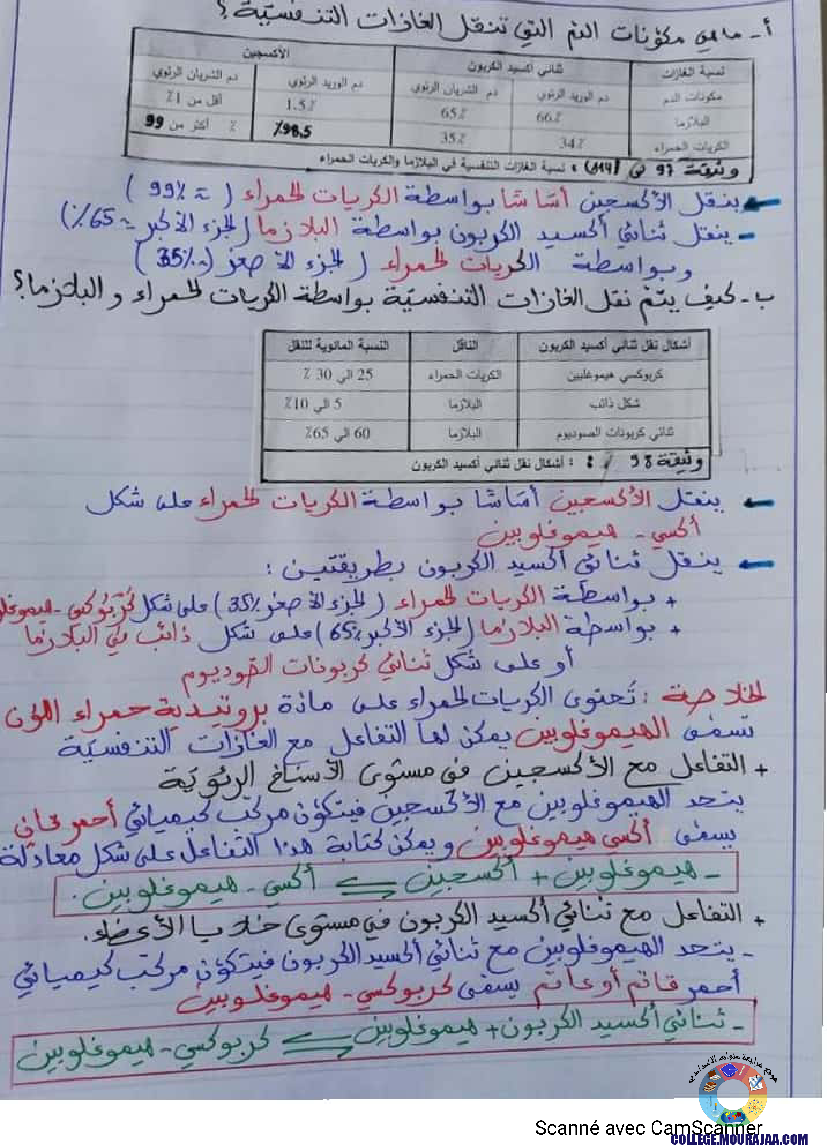 أ- ماهي مكونات الدم التي تنقل الغازات التنفسية ؟
نسبة الغازات ثنائي أكسيد الكربون الأكسجين
مكونات الدم دم الوريد الرئوي دم الشريان الرئوي دم الوريد الرئوي دم الشريان الرئوي
البلازما 66٪ 65٪ 1.5٪ أقل من 1٪
الكريات الحمراء 34٪ 35٪ 98.5٪ أكثر من 99 ٪
وثيقة 97 ص (114) : نسبة الغازات التنفسية في البلازما والكريات الحمراء
ينقل الأكسجين أساسا بواسطة الكريات الحمراء ( ≈ 99٪ )
- ينقل ثنائي أكسيد الكربون بواسطة البلازما (الجزء الأكبر ~ 65٪)
وبواسطة الكريات الحمراء ( الجزء الأصغر (~ 35٪)
ب- كيف يتم نقل الغازات التنفسية بواسطة الكريات الحمراء و البلازما؟
أشكال نقل ثنائي أكسيد الكربون الناقل النسبة المائوية للنقل
كربوكسي هيموغلبين الكريات الحمراء 25 الى 30 ٪
شكل ذائب البلازما 5 الى 10٪
ثنائي كربونات الصوديوم البلازما 60 الى 65٪
وثيقة 98 : أشكال نقل ثنائي أكسيد الكربون
ينقل الأكسجين أساسا بواسطة الكريات الحمراء على شكل
أكسي - هيموغلوبين
ينقل ثنائي أكسيد الكربون بطريقتين :
+ بواسطة الكريات الحمراء ( الجزء الأصغر 35٪) على شكل كربوكسي - هيموغلو
+ بواسطة البلازما (الجزء الأكبر 65٪) على شكل ذائب في البلازما
أو على شكل ثنائي كربونات الصوديوم
الخلاصة : تحتوي الكريات الحمراء على مادة بروتيدية حمراء اللون
تسمى الهيموغلوبين يمكن لها التفاعل مع الغازات التنفسية
+ التفاعل مع الأكسجين في مستوى الأسناخ الرئوية
يتحد الهيموغلوبين مع الأكسجين فيتكون مركب كيميائي أحمر قاني
يسمى أكسي هيموغلوبين ويمكن كتابة هذا التفاعل على شكل معادلة
- هيموغلوبين + أكسجين ⇌ أكسي - هيموغلوبين .
+ التفاعل مع ثنائي أكسيد الكربون في مستوى خلايا الأعضاء.
- يتحد الهيموغلوبين مع ثنائي أكسيد الكربون فيتكون مركب كيميائي
أحمر قاتم أو عاتم يسمى كربوكسي - هيموغلوبين
- ثنائي أكسيد الكربون + هيموغلوبين ⇌ كربوكسي - هيموغلوبين
Scanné avec CamScanner
COLLEGE.MOURAJAA.COM